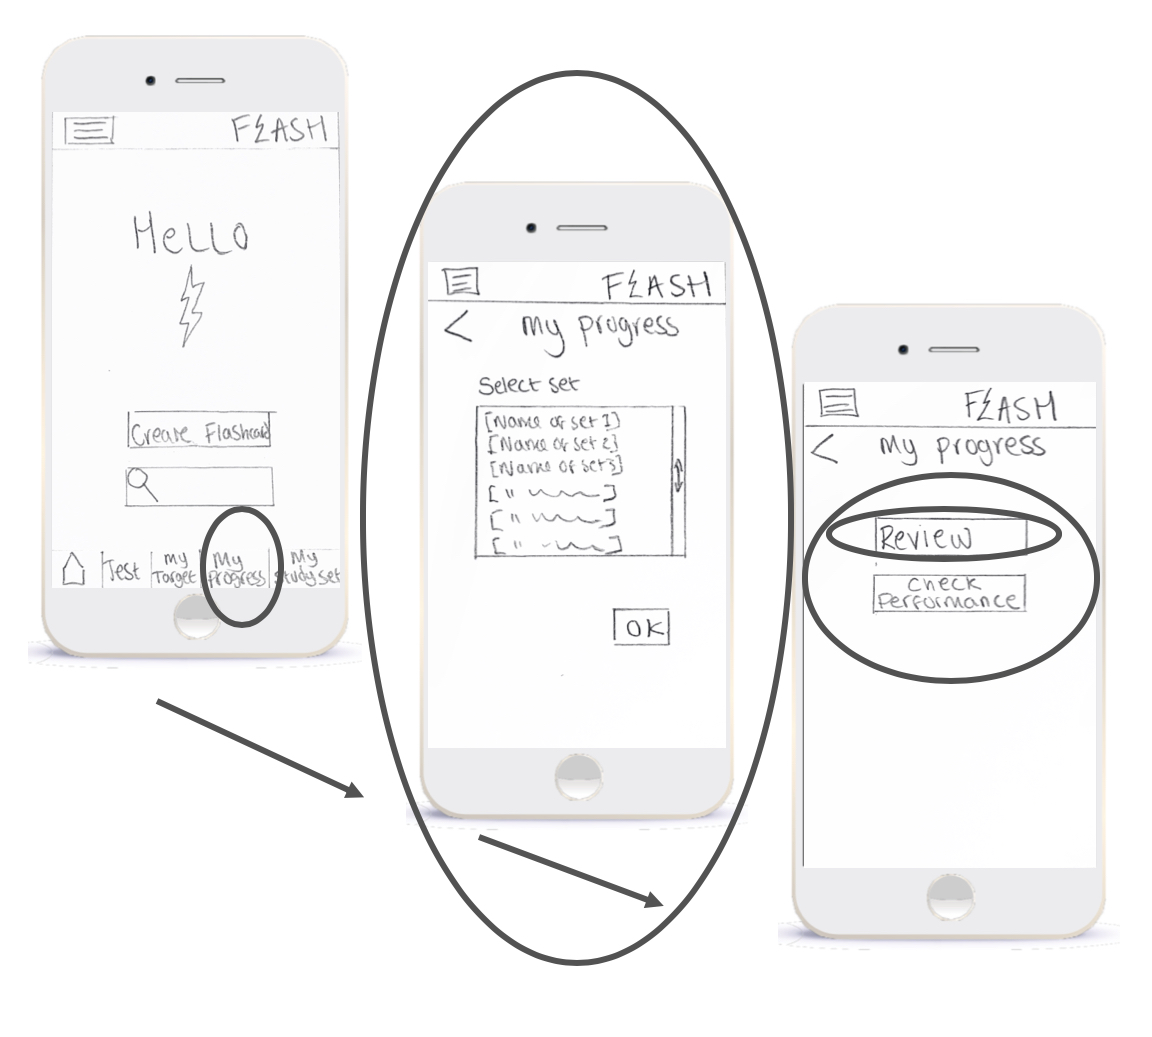 FLASH
Hello
Create Flashcard
Test
My
Target
My
progress
My
Study set
FLASH
< My progress
Select set
[Name of set 1]
[Name of set 2]
[Name of set 3]
[" ]
[" ]
[" ]
OK
FLASH
< My progress
Review
Check
Performance